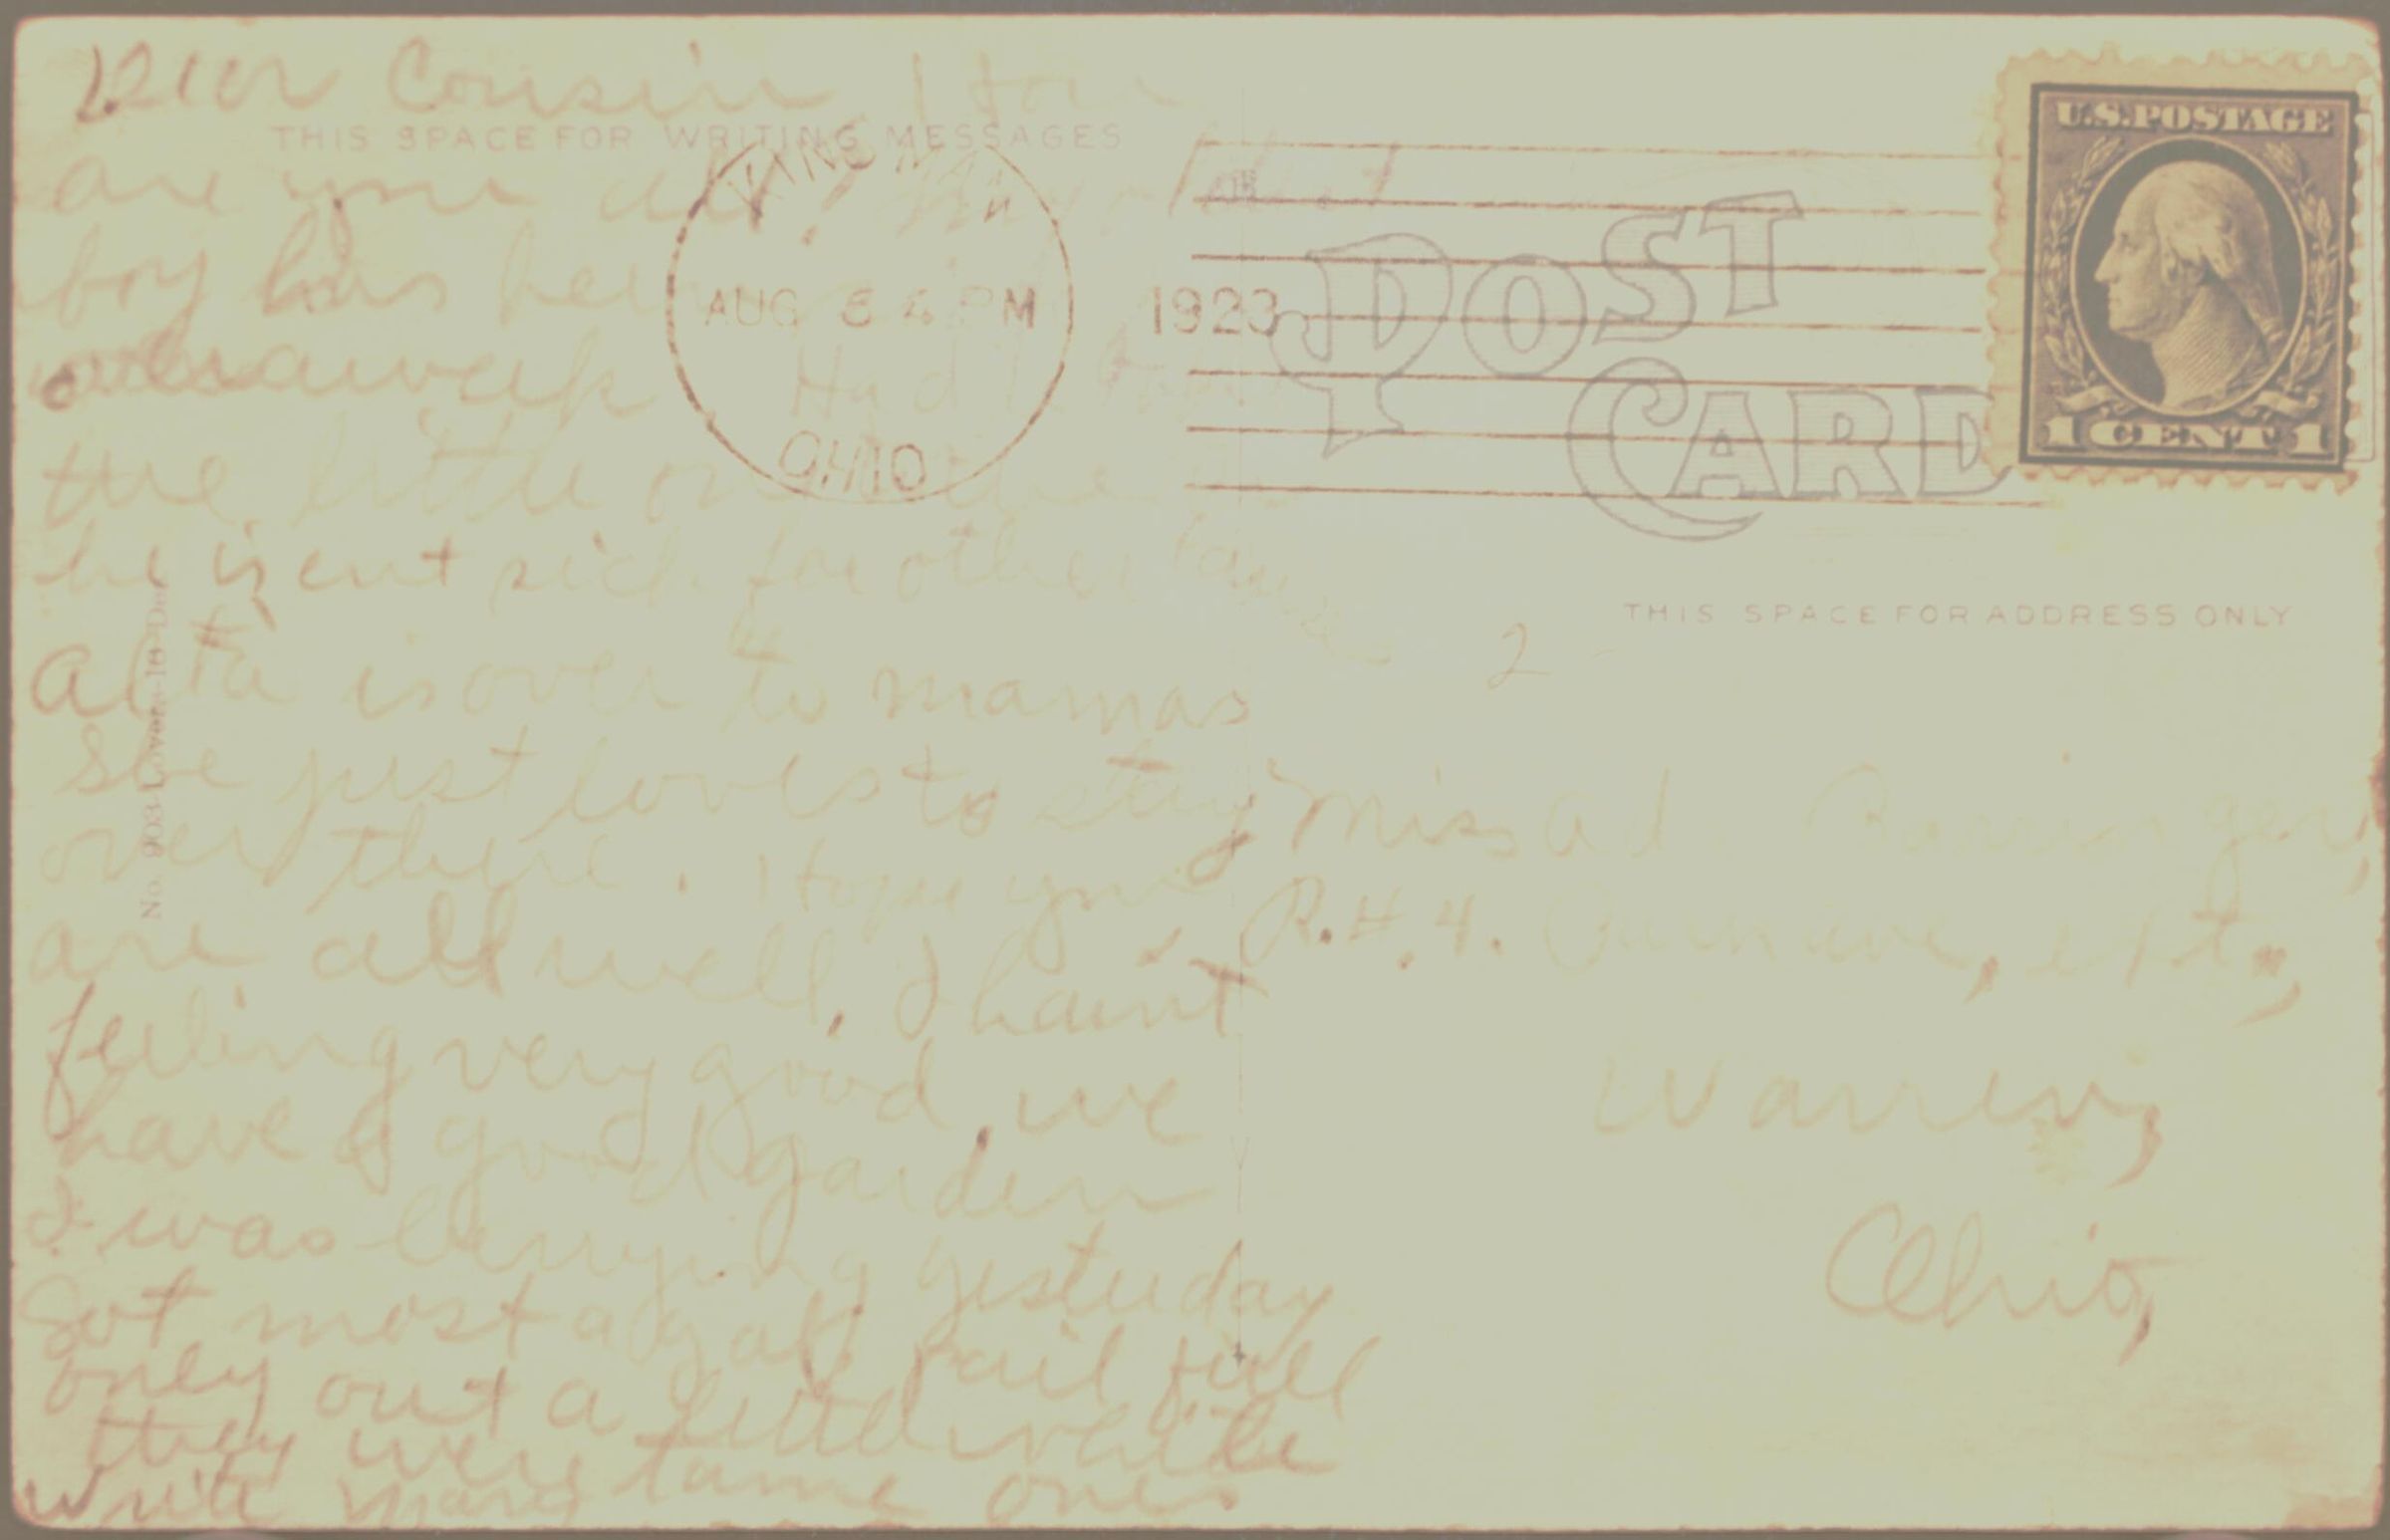 Dear Cousin How
THIS SPACE FOR WRITING MESSAGES
are you all?
boy has been
Had
the little one
he isent sick for other
Alta is over to mamas
She just loves to stay
over there. Hope you
are all well, I haint
feeling very good, we
have a good garden
I was berrying yesterday
Got most a gal. pail full
only out a little while
they were tame ones
write Mary
KINSMAN
AUG 8 4 PM 1923
OHIO
POST CARD
U.S. POSTAGE
1 CENT 1
THIS SPACE FOR ADDRESS ONLY
2
Miss
R.#.4.
Warren,
Ohio,
No. 903-Lovers-18-Des